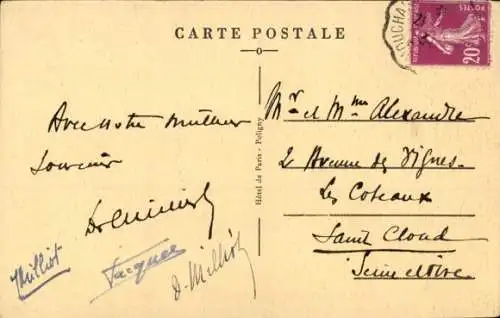 CARTE POSTALE
POSTES
20c
Avec notre meilleur
Souvenir
Milliot
Jacques
D. Milliot
Hôtel de Paris - Poligny
Mr et Mme Alexandre
2 Avenue des Vignes
Les Coteaux
Saint Cloud
Seine et Oise